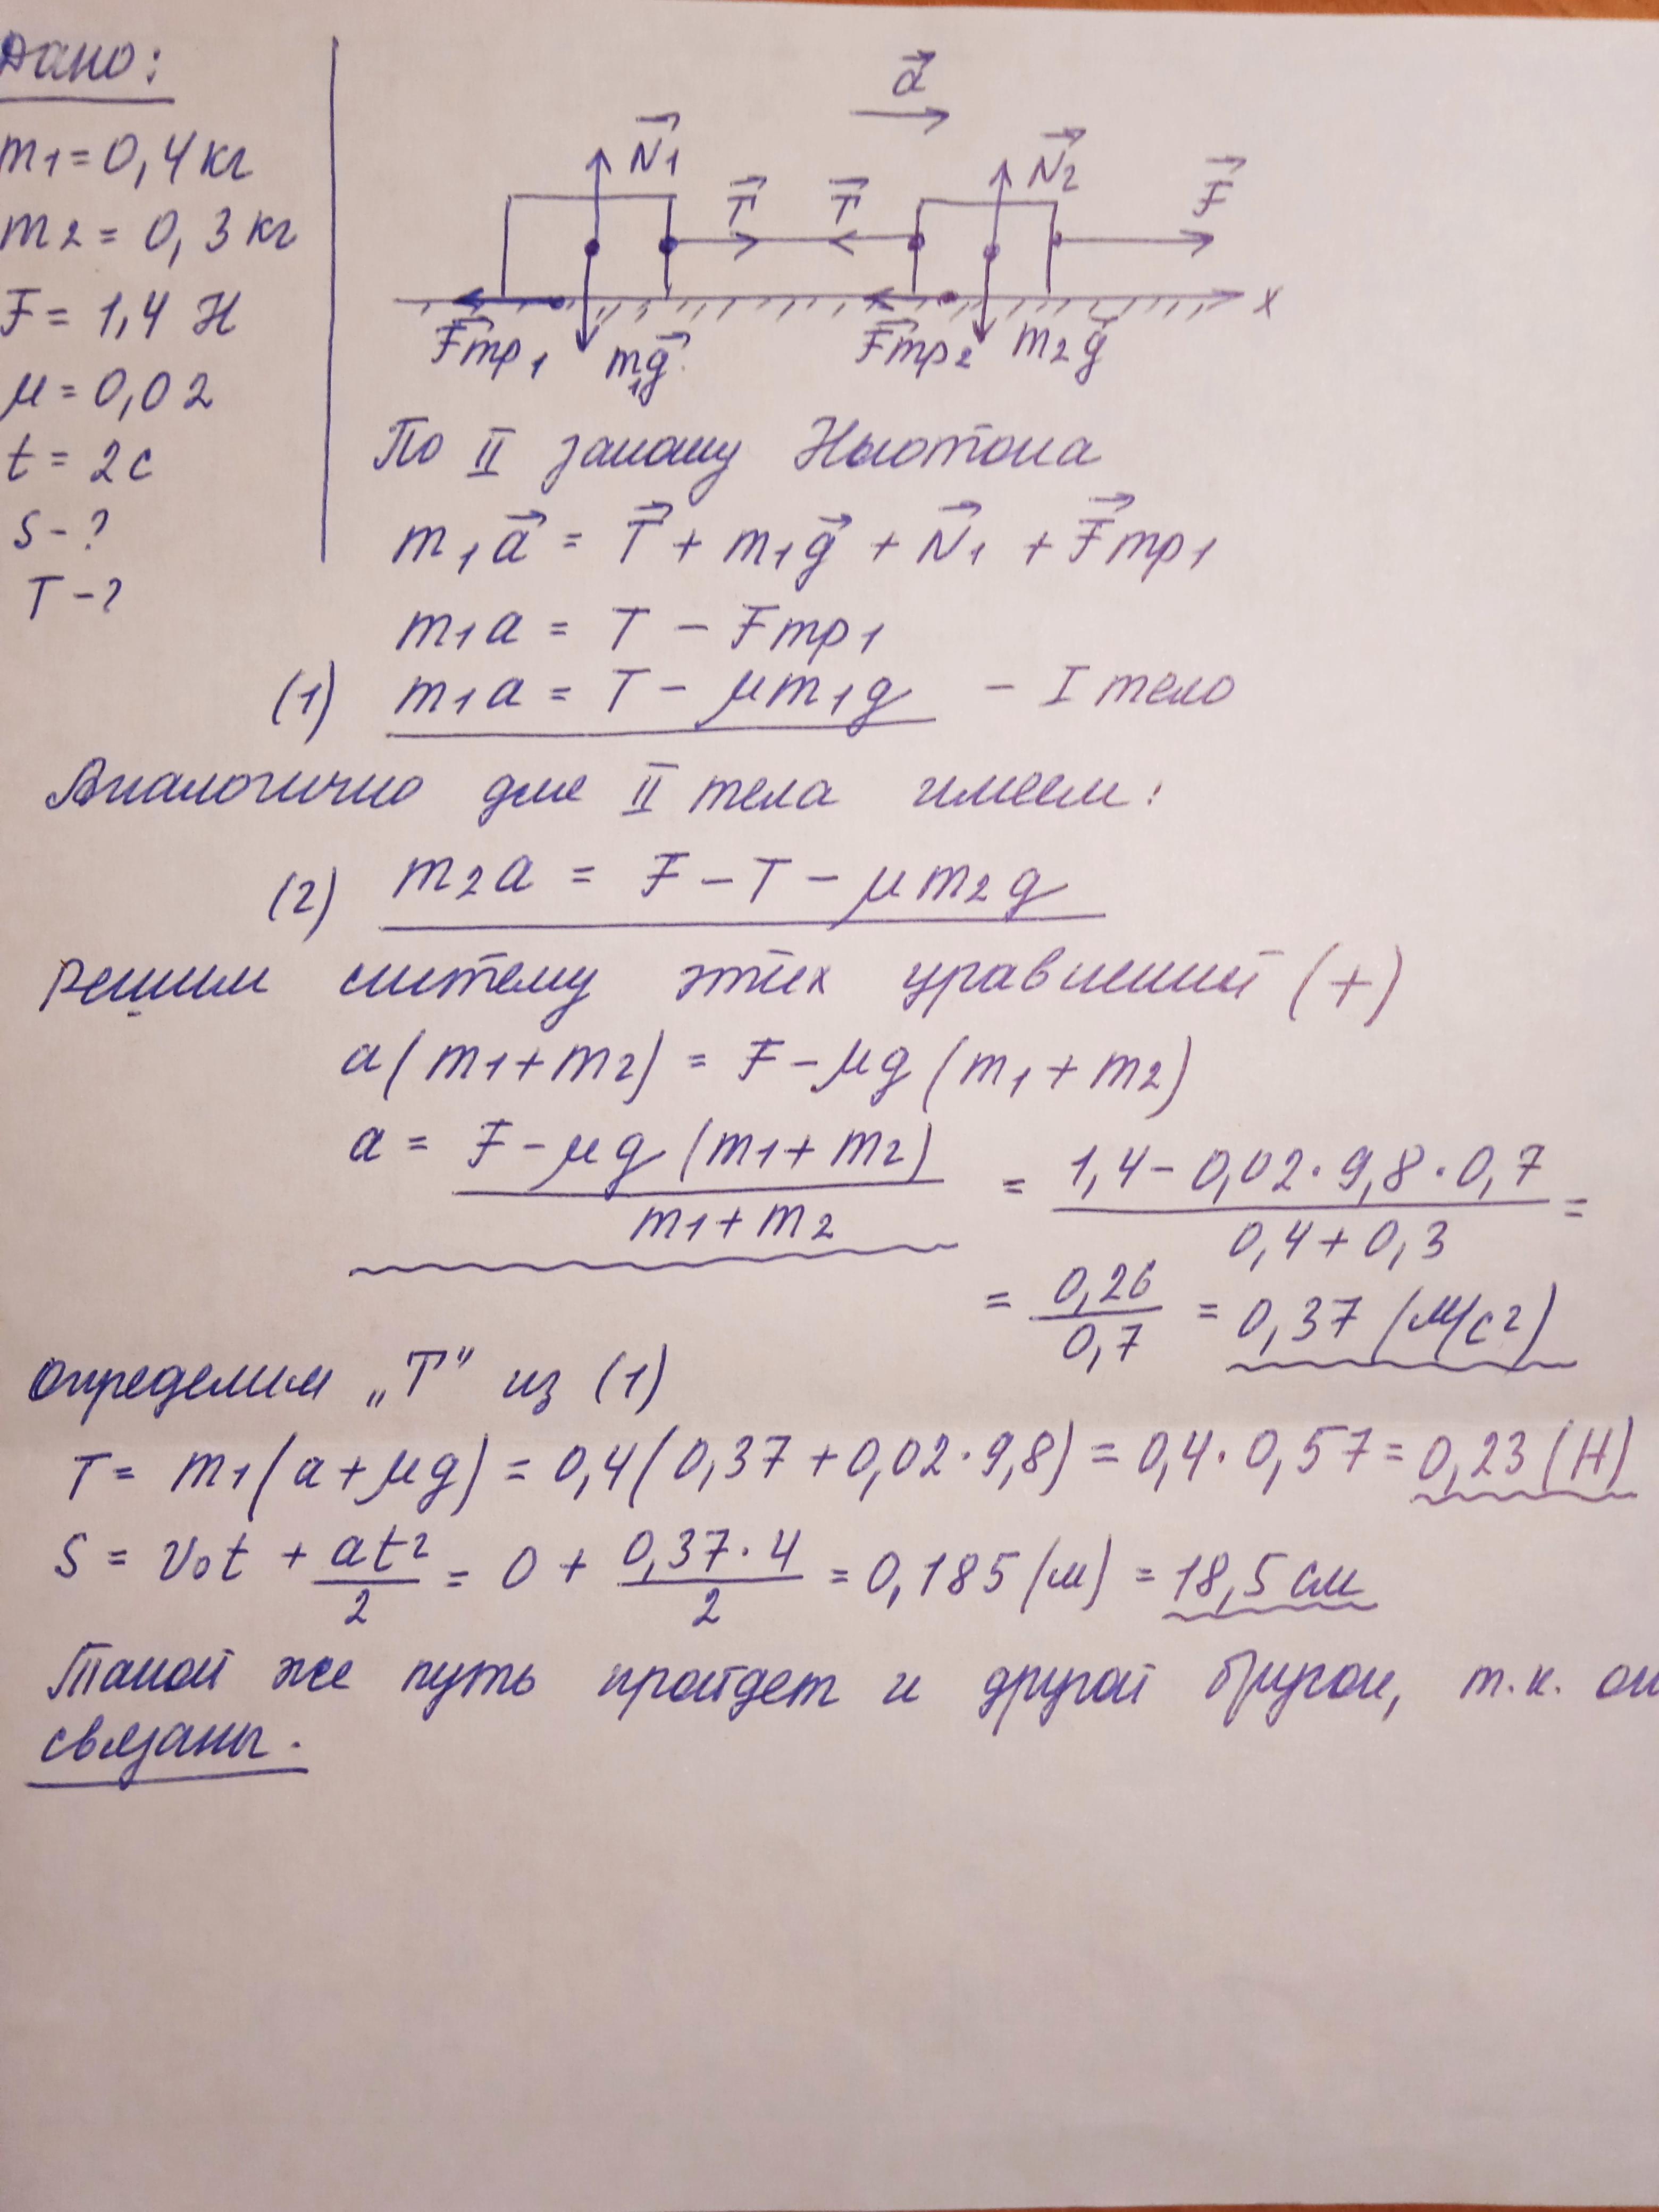 Дано:
m1 = 0,4 кг
m2 = 0,3 кг
F = 1,4 Н
μ = 0,02
t = 2с
S - ?
T - ?
a⃗
N⃗1
T⃗
T⃗
N⃗2
F⃗
x
F⃗тр1
m1g⃗
F⃗тр2
m2g⃗
По II закону Ньютона
m1a⃗ = T⃗ + m1g⃗ + N⃗1 + F⃗тр1
m1a = T - Fтр1
(1) m1a = T - μm1g - I тело
Аналогично для II тела имеем:
(2) m2a = F - T - μm2g
Решим систему этих уравнений (+)
a(m1+m2) = F - μg(m1+m2)
a = (F - μg(m1+m2))/(m1+m2) = (1,4 - 0,02·9,8·0,7)/(0,4+0,3) =
= 0,26/0,7 = 0,37 (м/с²)
Определим „T" из (1)
T = m1(a+μg) = 0,4(0,37+0,02·9,8) = 0,4·0,57 = 0,23 (Н)
S = v0t + at²/2 = 0 + (0,37·4)/2 = 0,185 (м) = 18,5 см
Такой же путь пройдет и другой брусок, т.к. они
связаны.